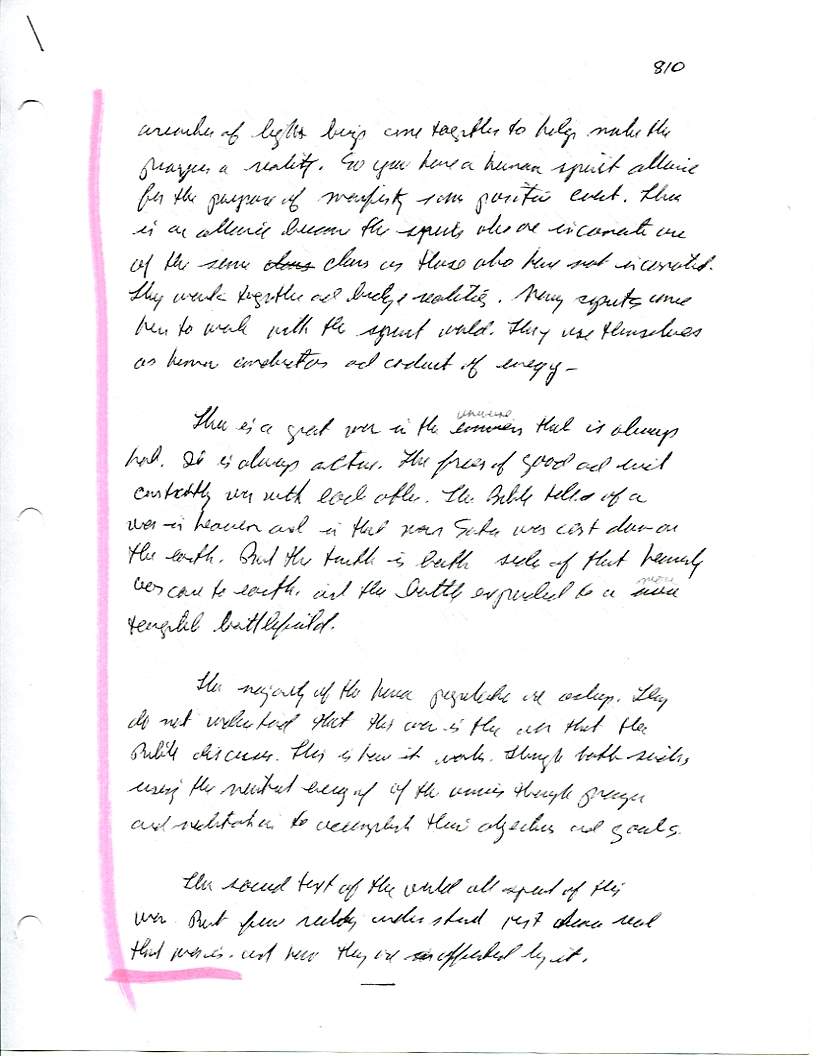 810
of light beings come together to help make the
prayer a reality. So you have a human spirit alliance
for the purpose of some positive event. This
is an alliance because the spirits who are incarnate are
of the same class class as those who have not incarnated.
They work together and bridge realities. Many spirits come
here to work with the spirit world. They use themselves
as human conductors and conduit of energy —
universe
This is a great war in the that is always
had. It is always active. The forces of good and evil
constantly war with each other. The Bible tells of a
war in heaven and in that war Satan was cast down on
the earth. But the truth is both side of that heavenly
more
war came to earth. and the battle expanded to a more
tangible battlefield.
The majority of the human are asleep. They
do not understand that this war is the war that the
Bible discusses. This is how it works. Through both sides
using the neutral energy of the through prayer
and meditation to accomplish their objectives and goals.
The sacred text of the world all speak of this
war. But few really understand just real
that war is. and how they are affected by it.